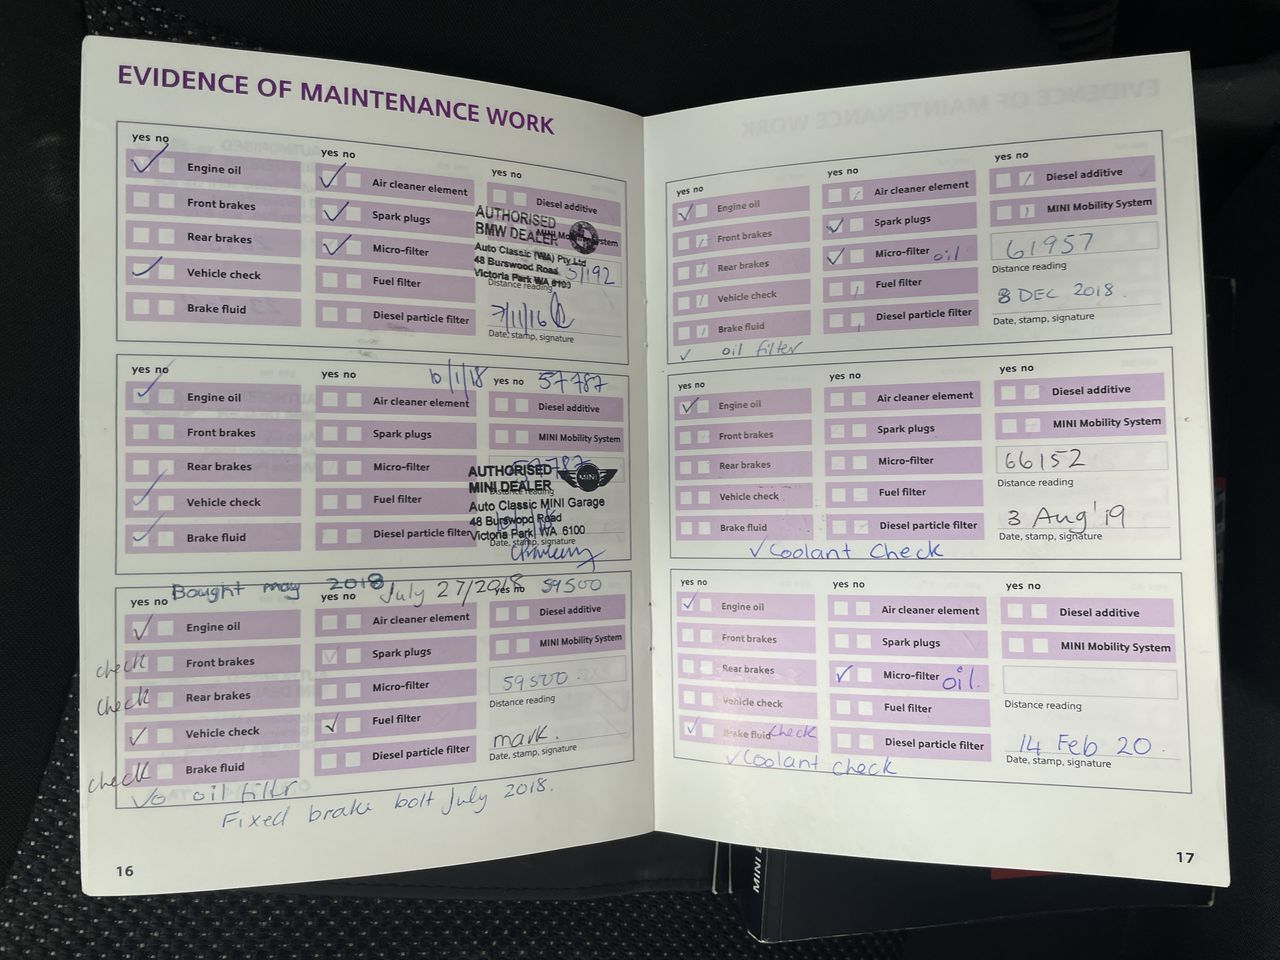 EVIDENCE OF MAINTENANCE WORK
yes no
Engine oil
Front brakes
Rear brakes
Vehicle check
Brake fluid
yes no
Air cleaner element
Spark plugs
Micro-filter
Fuel filter
Diesel particle filter
yes no
Diesel additive
MINI Mobility System
AUTHORISED
BMW DEALER
Auto Classic (WA) Pty Ltd
48 Burswood Road
Victoria Park WA 6100
51192
Distance reading
7/11/16
Date, stamp, signature
yes no
Engine oil
Front brakes
Rear brakes
Vehicle check
Brake fluid
yes no
10/1/18
Air cleaner element
Spark plugs
Micro-filter
Fuel filter
Diesel particle filter
yes no
57787
Diesel additive
MINI Mobility System
57787
Distance reading
AUTHORISED
MINI DEALER
MINI
Auto Classic MINI Garage
48 Burswood Road
Victoria Park WA 6100
Date, stamp, signature
Bought may 2018
July 27/2018 59500
yes no
Engine oil
check Front brakes
check Rear brakes
Vehicle check
check Brake fluid
yes no
Air cleaner element
Spark plugs
Micro-filter
Fuel filter
Diesel particle filter
yes no
Diesel additive
MINI Mobility System
59500
Distance reading
mark.
Date, stamp, signature
oil filtr
Fixed brake bolt July 2018.
16
yes no
Engine oil
Front brakes
Rear brakes
Vehicle check
Brake fluid
oil filter
yes no
Air cleaner element
Spark plugs
Micro-filter oil
Fuel filter
Diesel particle filter
yes no
Diesel additive
MINI Mobility System
61957
Distance reading
8 DEC 2018.
Date, stamp, signature
yes no
Engine oil
Front brakes
Rear brakes
Vehicle check
Brake fluid
yes no
Air cleaner element
Spark plugs
Micro-filter
Fuel filter
Diesel particle filter
yes no
Diesel additive
MINI Mobility System
66152
Distance reading
3 Aug '19
Date, stamp, signature
✓ Coolant Check
yes no
Engine oil
Front brakes
Rear brakes
Vehicle check
Brake fluid check
yes no
Air cleaner element
Spark plugs
Micro-filter oil.
Fuel filter
Diesel particle filter
yes no
Diesel additive
MINI Mobility System
Distance reading
14 Feb 20.
Date, stamp, signature
✓ Coolant check
17